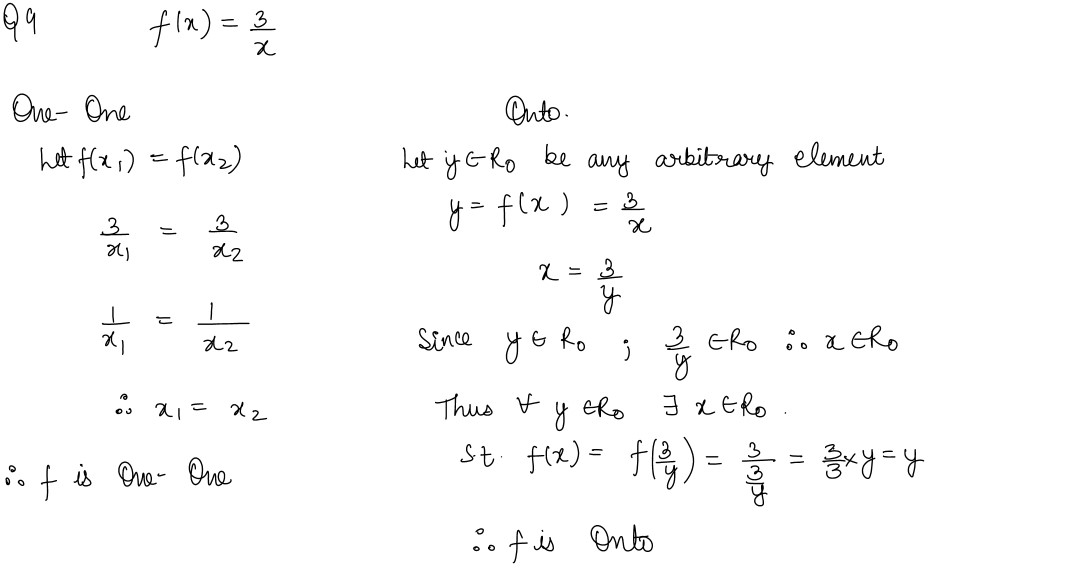 Q9 f(x) = 3/x
One-One
Let f(x₁) = f(x₂)
3/x₁ = 3/x₂
1/x₁ = 1/x₂
∴ x₁ = x₂
∴ f is One-One
Onto.
Let y ∈ R₀ be any arbitrary element
y = f(x) = 3/x
x = 3/y
Since y ∈ R₀ ; 3/y ∈ R₀ ∴ x ∈ R₀
Thus ∀ y ∈ R₀ ∃ x ∈ R₀.
s.t. f(x) = f(3/y) = 3/(3/y) = 3/3 × y = y
∴ f is Onto